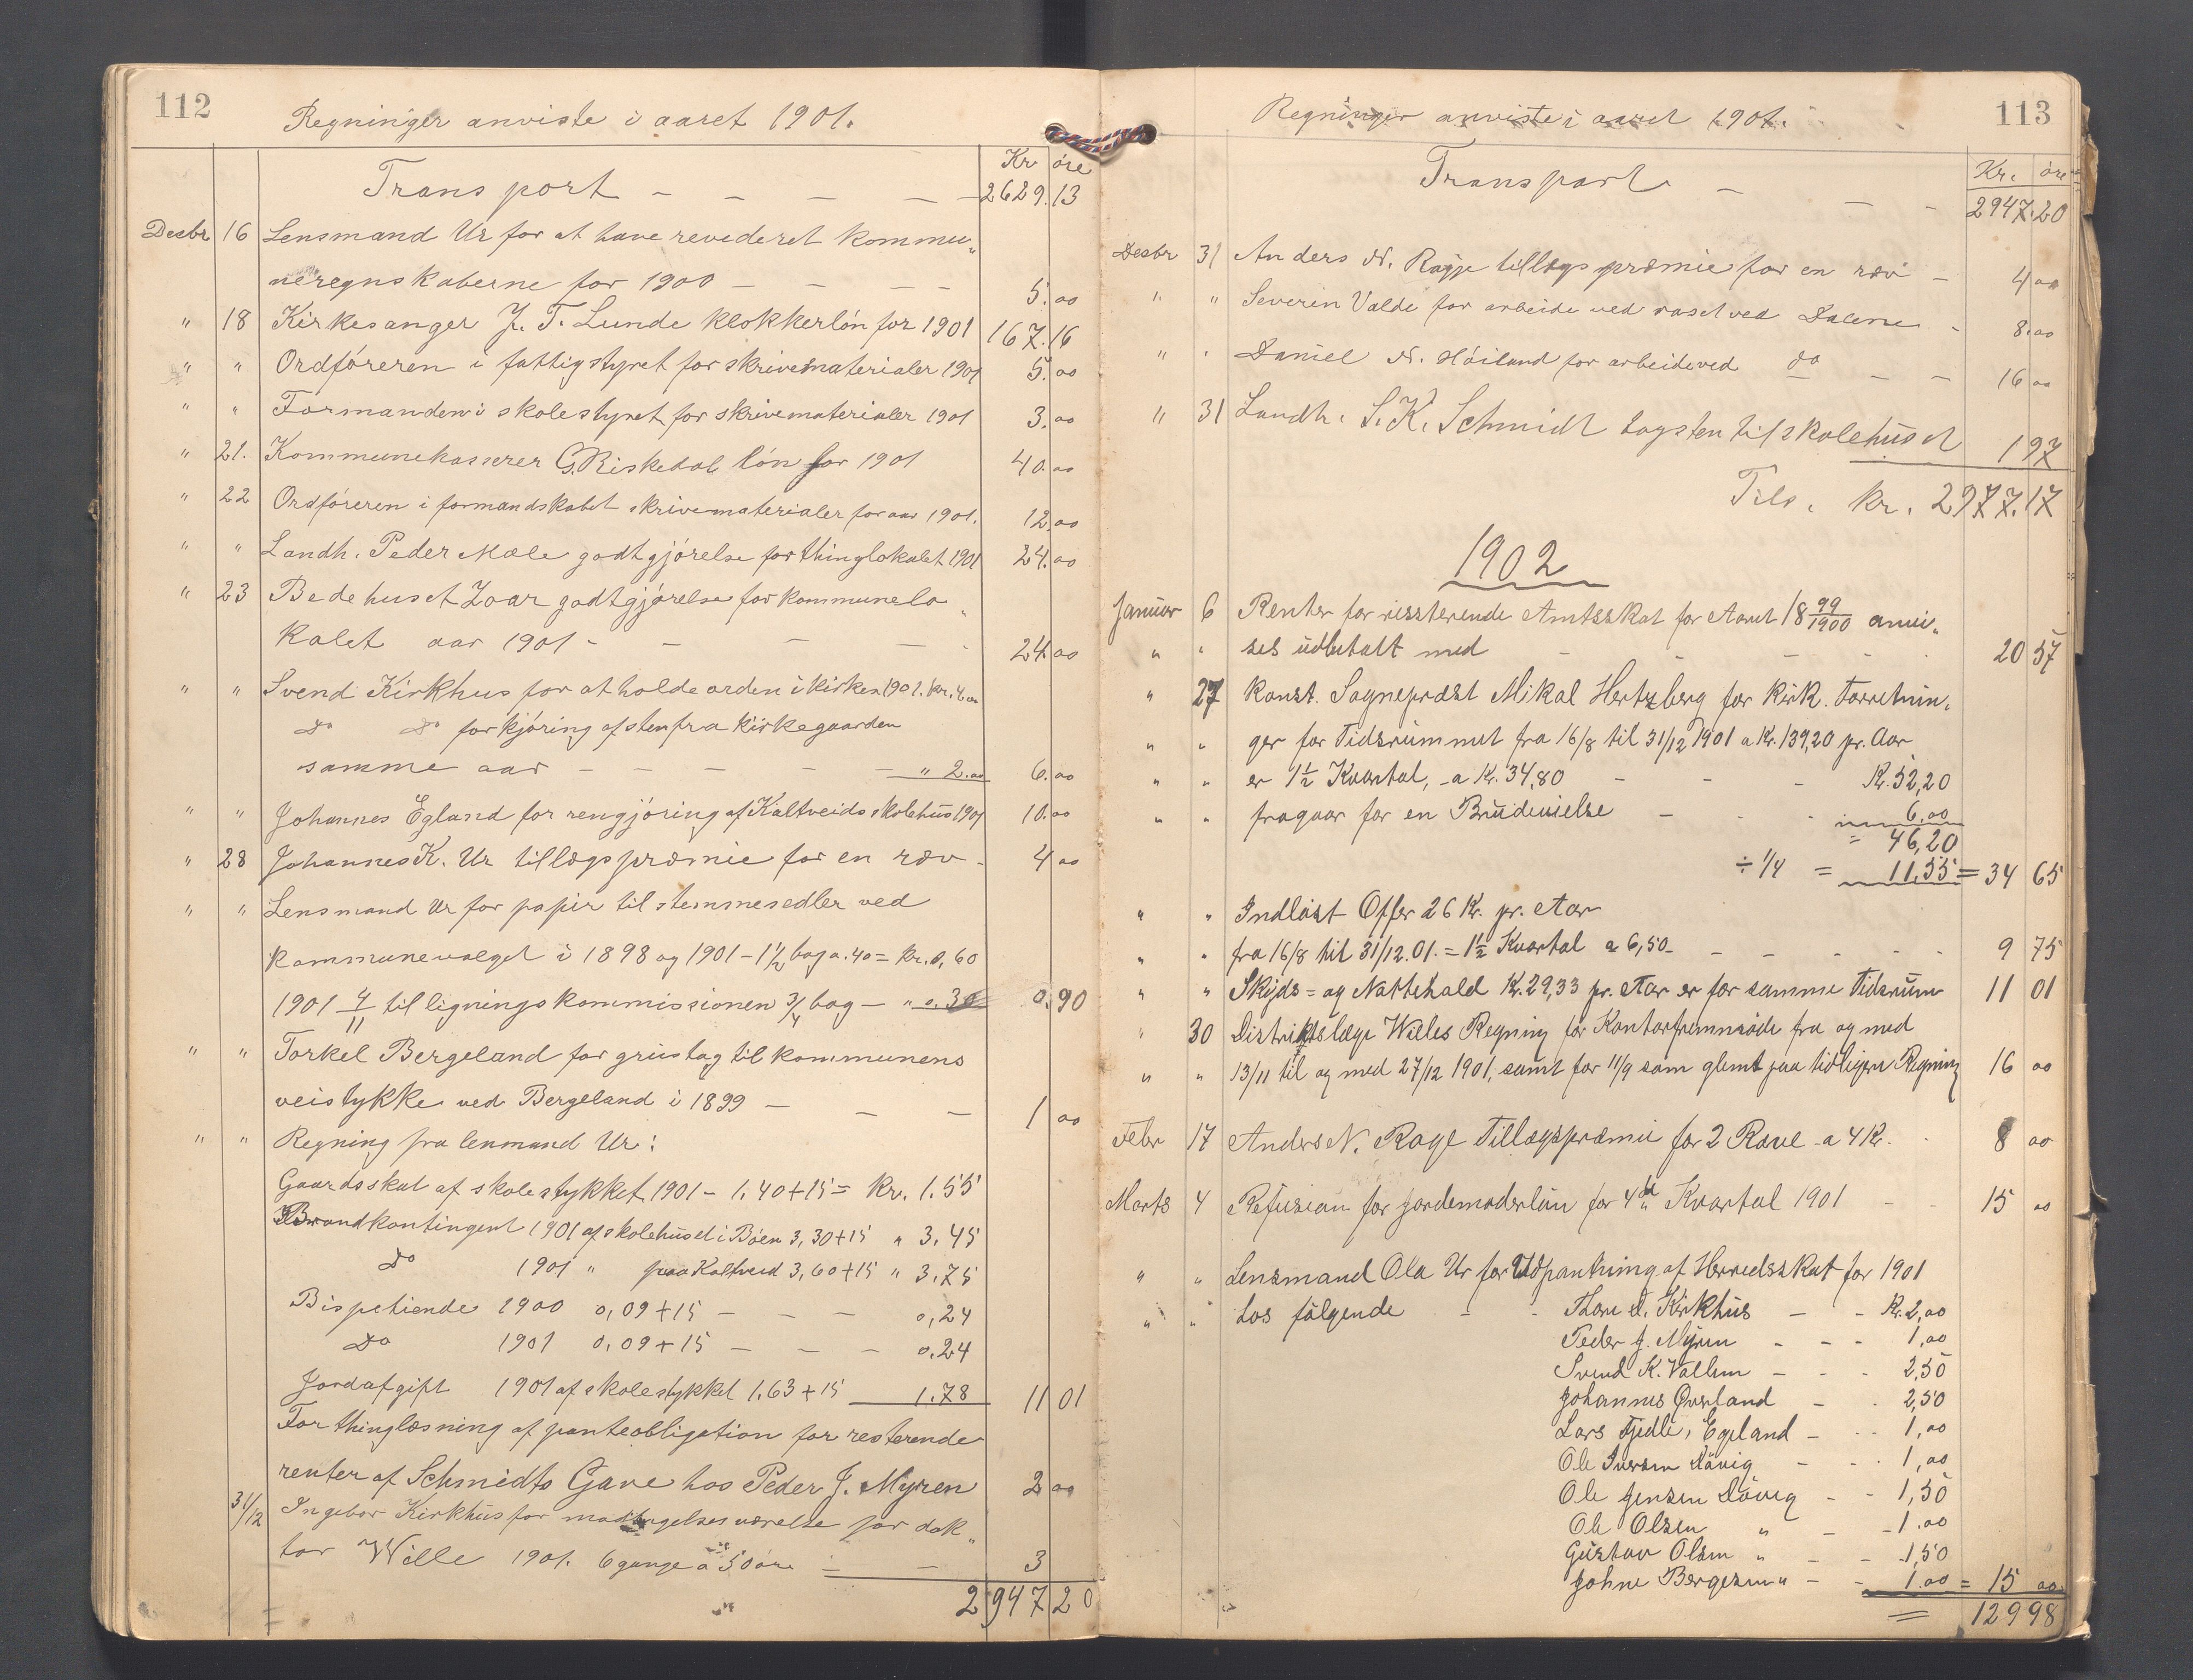 112
Regninger anviste i aaret 1901.
Kr øre
Transport – – – – – 2629.13
Desbr 16 Lensmand Ur for at have revideret kommu„
neregnskaberne for 1900 – – – – 5.00
" 18 Kirkesanger J. T. Lunde klokkerløn for 1901 167.16
" " Ordføreren i fattigstyret for skrivematerialer 1901 5.00
" " Formanden i skolestyret for skrivematerialer 1901 3.00
" 21. Kommunekasserer G. Riskedal løn for 1901 40.00
" 22 Ordføreren i formandskabet skrivematerialer for aar 1901. 12.00
" " Landh. Peder Mæle godtgjørelse for thinglokalet 1901 24.00
" 23 Bedehuset Zoar godtgjørelse for kommunelo„
kalet aar 1901 – – – – 24.00
" " Svend Kirkhus for at holde orden i kirken 1901. kr. 4.00
do do for kjøring af sten fra kirkegaarden
samme aar – – – – – " 2.00 6.00
" " Johannes Egland for rengjøring af Kaltveids skolehus 1901 10.00
" 28 Johannes K. Ur tillægspræmie for en ræv – 4 00
" " Lensmand Ur for papir til stemmesedler ved
kommunevalget i 1898 og 1901 – 1½ bog a. 40 = kr. 0,60
1901 4/11 til ligningskommissionen 3/4 bog – " 0.30 0.90
" " Torkel Bergeland for grustag til kommunens
veistykke ved Bergeland i 1899 – – – 1 00
" " Regning fra lenmand Ur:
Gaardsskat af skolestykket 1901 – 1.40 + 15 = kr. 1.55
Brandkontingent 1901 af skolehuset i Bøen 3,30 + 15 " 3.45
do 1901 " paa Kaltveid 3,60 + 15 " 3.75
Bispetiende 1900 0,09 + 15 – – – 0,24
do 1901 0,09 + 15 – – – 0.24
Jordafgift 1901 af skolestykket 1.63 + 15 1.78 11 01
For thinglæsning af panteobligation for resterende
renter af Schmidts Gave hos Peder J. Myren 2 00
31/12 Ingebor Kirkhus for modtagelsesværelse for dok„
tor Wille 1901. 6 gange a 50 øre – – 3
2947 20
113
Regninger anviste i aaret 1901.
Kr. øre
Transport – – – 2947.20
Desbr 31 Anders N. Rage tillægspræmie for en ræv – 4 00
" " Severin Valde for arbeide ved raset ved Dalene – 8.00
" " Daniel N. Høiland for arbeide ved do – – 16 00
" 31 Landh. S. K. Schmidt tagsten til skolehuset 1 97
Tils. kr. 2977.17
1902
Januar 6 Renter for resterende Amtsskat for Aaret 18 99/1900 anvi„
" " ses udbetalt med – – – – 20 57
" 27 Konst. Sognepræst Mikal Hertzberg for kirk. Forretnin„
" " ger for Tidsrummet fra 16/8 til 31/12 1901 a Kr. 139,20 pr. Aar
" " er 1½ Kvartal, a Kr. 34,80 – – – Kr. 52,20
" " fragaar for en Brudevielse – – – 6.00
= 46,20
÷ 1/4 = 11,55 = 34 65
" " Indløst Offer 26 Kr. pr. Aar
" " fra 16/8 til 31/12.01. = 1½ Kvartal a 6,50 – – – – – 9 75
" " Skyds- og Nattehold Kr. 29,33 pr. Aar er for samme Tidsrum 11 01
" 30 Distriktslæge Willes Regning for Kontorfremmøde fra og med
" " 13/11 til og med 27/12 1901, samt for 11/9 som glemt paa tidligere Regning 16 00
Febr 17 Anders N. Rage Tillægspræmie for 2 Ræve a 4 Kr. 8 00
Marts 4 Refusion for jordemoderløn for 4de Kvartal 1901 – – 15 00
" " Lensmand Ola Ur for Udpantning af Herredsskat for 1901
" " hos følgende – – Thore I. Kirkhus – – Kr. 2,00
Peder J. Myren – – – 1,00
Svend K. Vallem – – – 2,50
Johannes Øverland – – 2,50
Lars Fjedle, Egeland – – – 1,00
Ole Iversen Løvig – – – 1,00
Ole Jensen Løvig – – 1,50
Ole Olsen " – – 1.00
Gustav Olsen " – – 1,50
Johne Bergesen " – – 1.00 = 15 00
= 129 98